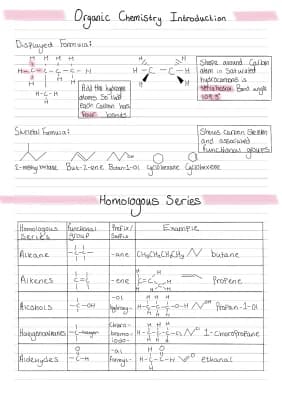 Organic Chemistry Introduction
Displayed Formula:
Add the hydrogen
atoms so that
each carbon has
four bonds
Shape around Carbon
atom in Saturated
hydrocarbons is
tetrahedral. Bond angle
109.5°
Skeletal Formula:
Shows carbon skeleton
and associated
functional groups
2-methylbutane But-2-ene Butan-1-ol cyclohexane cyclohexene
Homologous Series
Homologous Series
Functional group
Prefix/ Suffix
Example
Alkane
-ane
CH3CH2CH2CH3
butane
Alkenes
-ene
Propene
Alcohols
-ol
hydroxy-
Propan-1-ol
Halogenoalkanes
chloro-
bromo-
iodo-
1-chloropropane
Aldehydes
-al
formyl-
ethanal